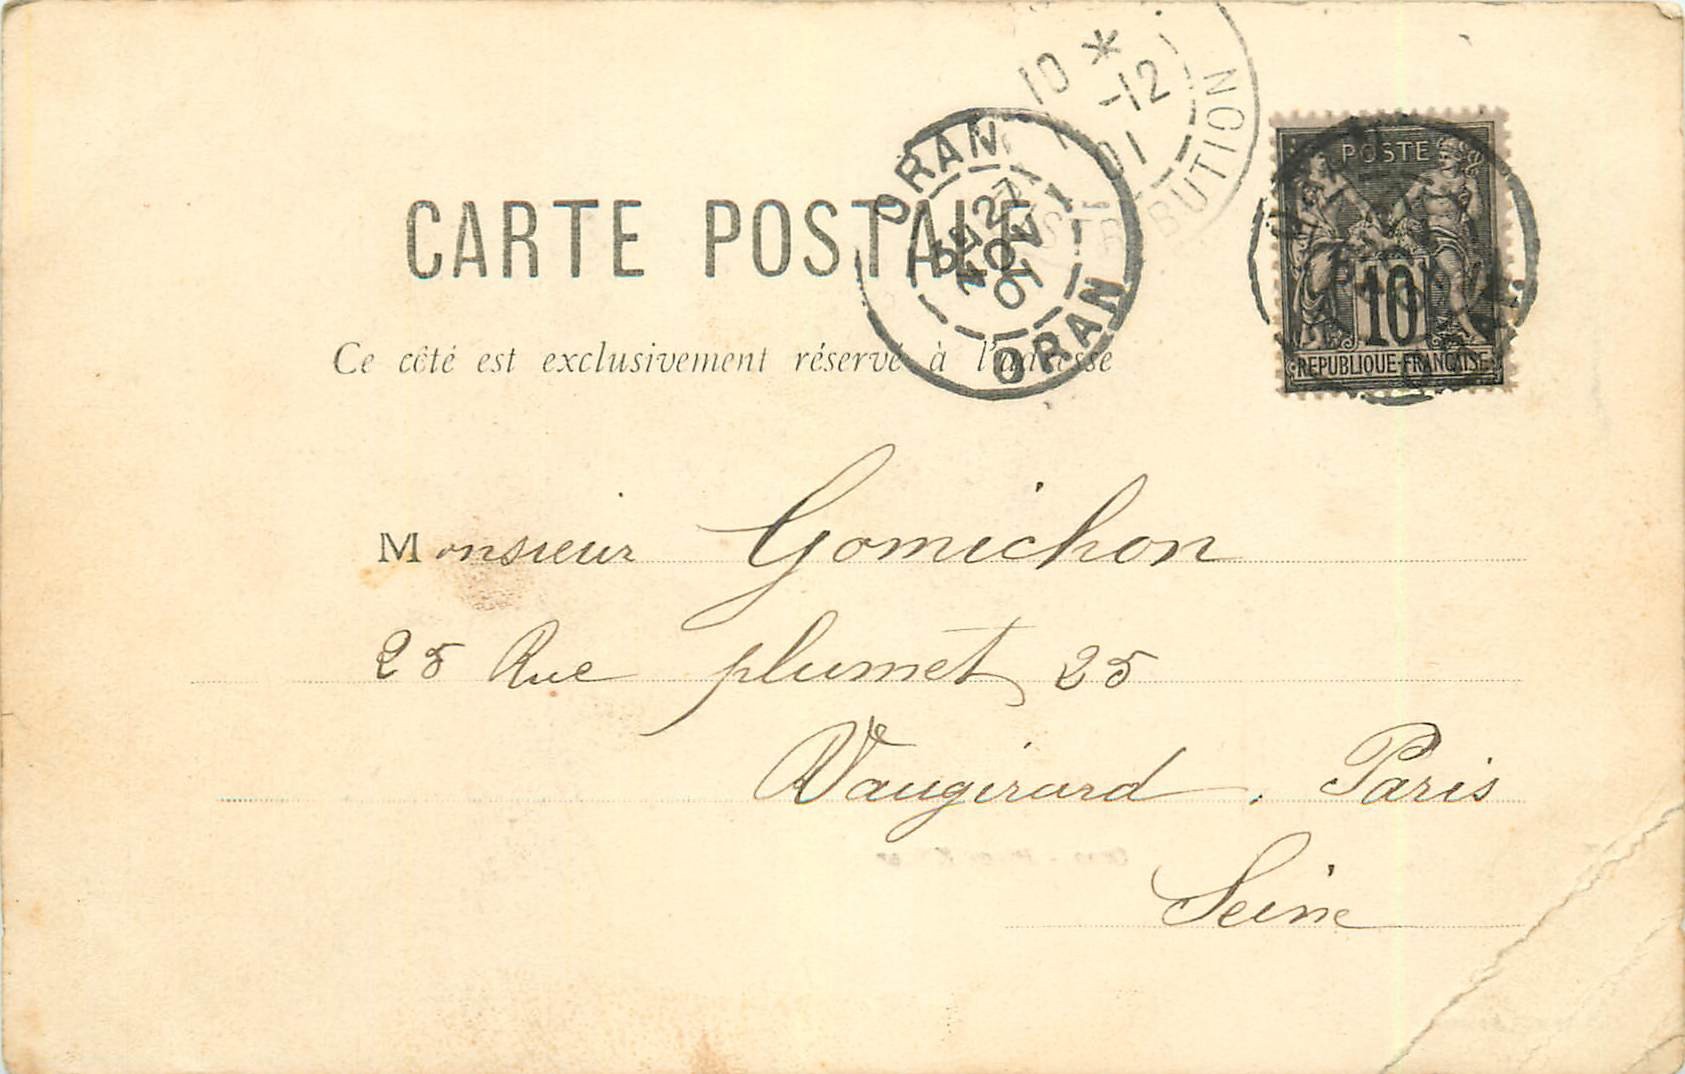 10 *
1 -12
01
DISTRIBUTION
POSTE
10
REPUBLIQUE FRANÇAISE
ORAN
3E 27
NOV
01
ORAN
CARTE POSTALE
Ce côté est exclusivement réservé à l'adresse
Monsieur Gomichon
25 Rue plumet 25
Vaugirard, Paris
Seine